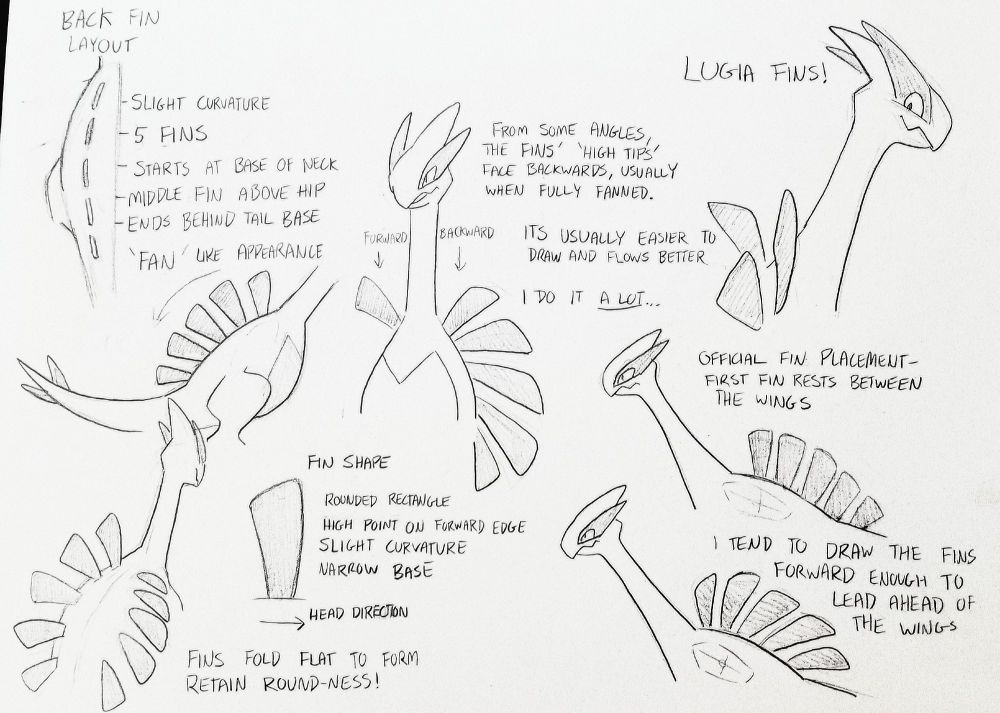 BACK FIN
LAYOUT
SLIGHT CURVATURE
5 FINS
STARTS AT BASE OF NECK
MIDDLE FIN ABOVE HIP
ENDS BEHIND TAIL BASE
'FAN' LIKE APPEARANCE
LUGIA FINS!
FROM SOME ANGLES,
THE FINS' 'HIGH TIPS'
FACE BACKWARDS, USUALLY
WHEN FULLY FANNED.
FORWARD
BACKWARD
ITS USUALLY EASIER TO
DRAW AND FLOWS BETTER
I DO IT A LOT...
OFFICIAL FIN PLACEMENT-
FIRST FIN RESTS BETWEEN
THE WINGS
FIN SHAPE
ROUNDED RECTANGLE
HIGH POINT ON FORWARD EDGE
SLIGHT CURVATURE
NARROW BASE
HEAD DIRECTION
I TEND TO DRAW THE FINS
FORWARD ENOUGH TO
LEAD AHEAD OF
THE WINGS
FINS FOLD FLAT TO FORM
RETAIN ROUND-NESS!